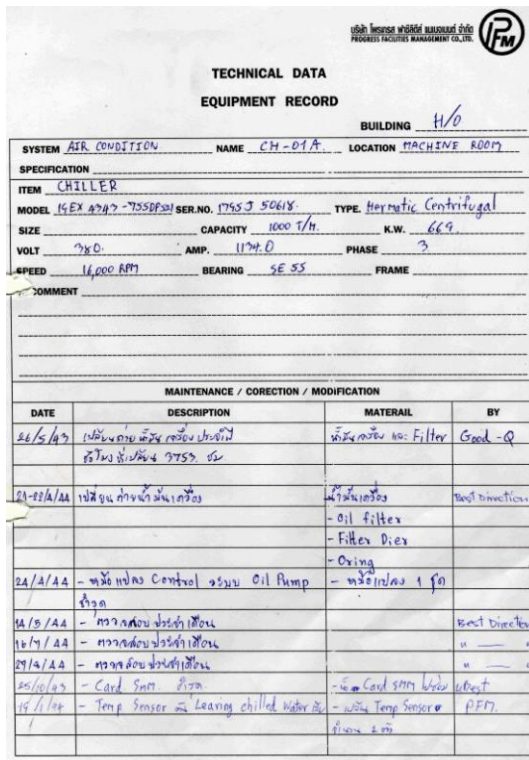 บริษัท โพรเกรส ฟาซิลิตี้ส์ แมเนจเมนท์ จำกัด
PROGRESS FACILITIES MANAGEMENT CO.,LTD.
PFM
TECHNICAL DATA
EQUIPMENT RECORD
BUILDING H/O
SYSTEM AIR CONDITION NAME CH-01A. LOCATION MACHINE ROOM
SPECIFICATION
ITEM CHILLER
MODEL SER.NO. 1795J 50618. TYPE. Hermatic Centrifugal
SIZE CAPACITY 1000 T/H. K.W. 669.
VOLT 380. AMP. 1134.0 PHASE 3
SPEED 16,000 RPM BEARING SE SS FRAME
COMMENT
MAINTENANCE / CORECTION / MODIFICATION
DATE DESCRIPTION MATERAIL BY
26/5/43 เปลี่ยนถ่ายน้ำมันเครื่องประจำปี น้ำมันเครื่อง และ Filter Good-Q
ชั่วโมงที่เปลี่ยน 3753 ชม
21-22/4/44 เปลี่ยนถ่ายน้ำมันเครื่อง น้ำมันเครื่อง Best Direction
- Oil filter
- Filter Dier
- Oring
24/4/44 - หม้อแปลง Control ระบบ Oil Pump - หม้อแปลง 1 ชุด
ชำรุด
14/5/44 - ตรวจสอบประจำเดือน Best Direction
16/7/44 - ตรวจสอบประจำเดือน " "
29/8/44 - ตรวจสอบประจำเดือน " "
25/10/43 - Card SMM. ชำรุด Card SMM Best
19/1/44 - Temp Sensor Leaving chilled Water - เปลี่ยน Temp Sensor PFM.
จำนวน 2 ตัว